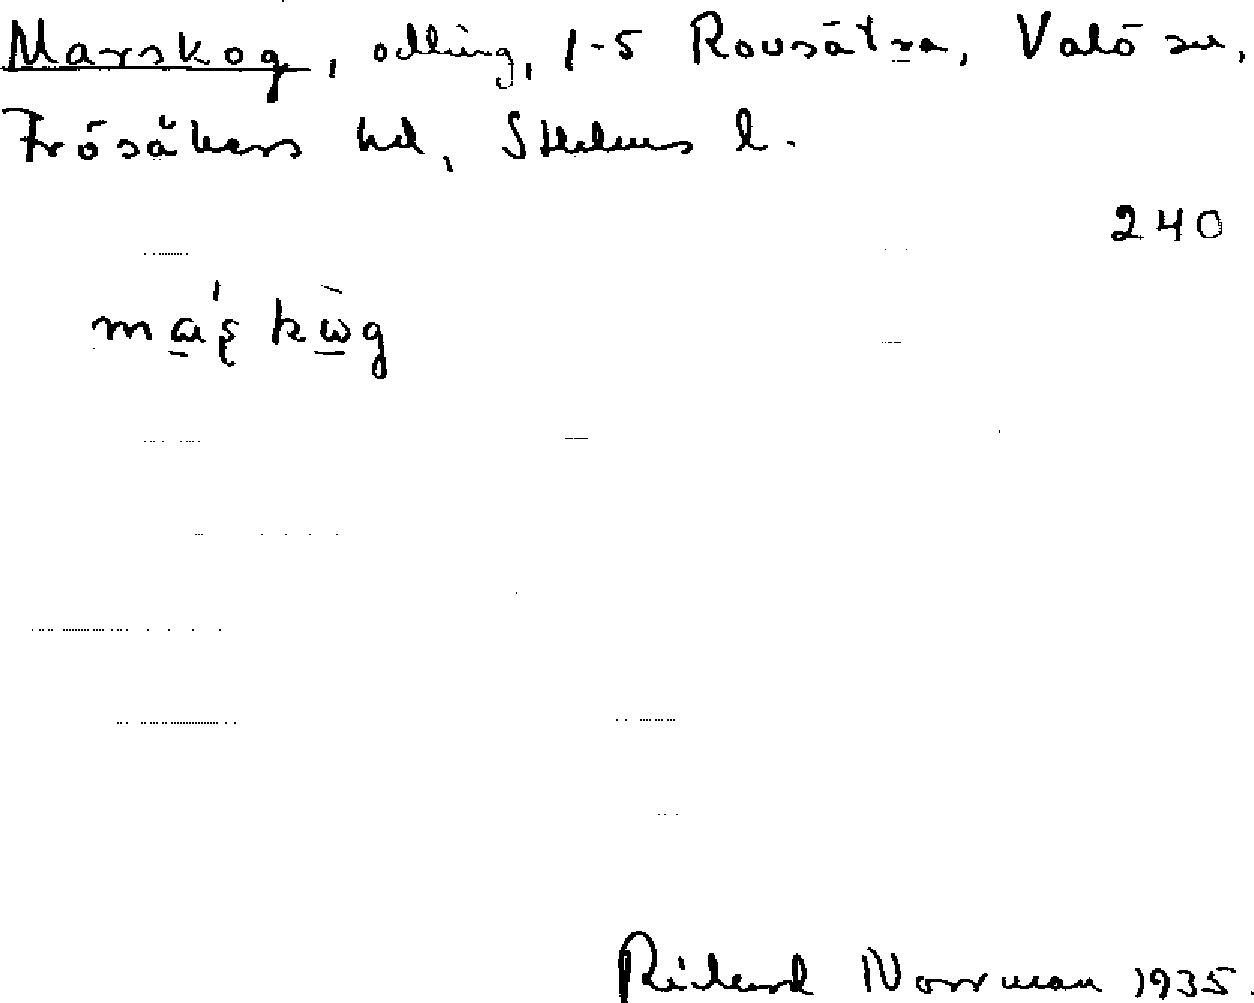 Marskog, odling, 1-5 Rovsätra, Valö sn,
Frösåkers hd, Sthlms l.
240
Rickard Norrman 1935.